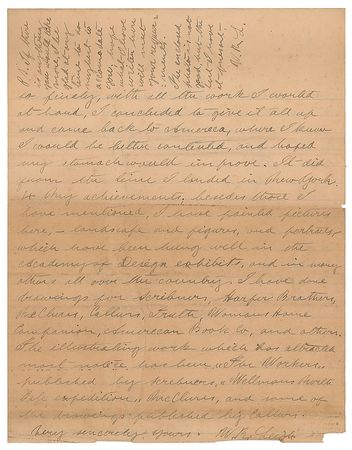 so finally, with all the work I wanted
at hand, I concluded to give it all up
and come back to America, where I knew
I would be better contented, and hoped
my stomach would improve. It did
from the time I landed in New York.
My achievements, besides those I
have mentioned, I have painted pictures
here, – landscape and figures, and portraits,
which have been hung well in the
Academy of Design exhibits, and in many
others all over the country. I have done
drawings for Scribners, Harper Brothers,
McClures, Colliers, Truth, Womans Home
Companion, American Book Co, and others.
The illustrating work which has attracted
most notice has been "The Workers"
published by Scribners, "Wellmans North
Pole expedition", McClures, and some of
the drawings published by Colliers.
Very sincerely yours. W. R. Leigh
P.S. If there
is anything
you would like
glad at any
time to do so
to
accommodate
you. I hope
what I have
written will
suit
your require-
ments.
The enclosed
photo is not
good, but the
best I have
at present.
W. R. L.